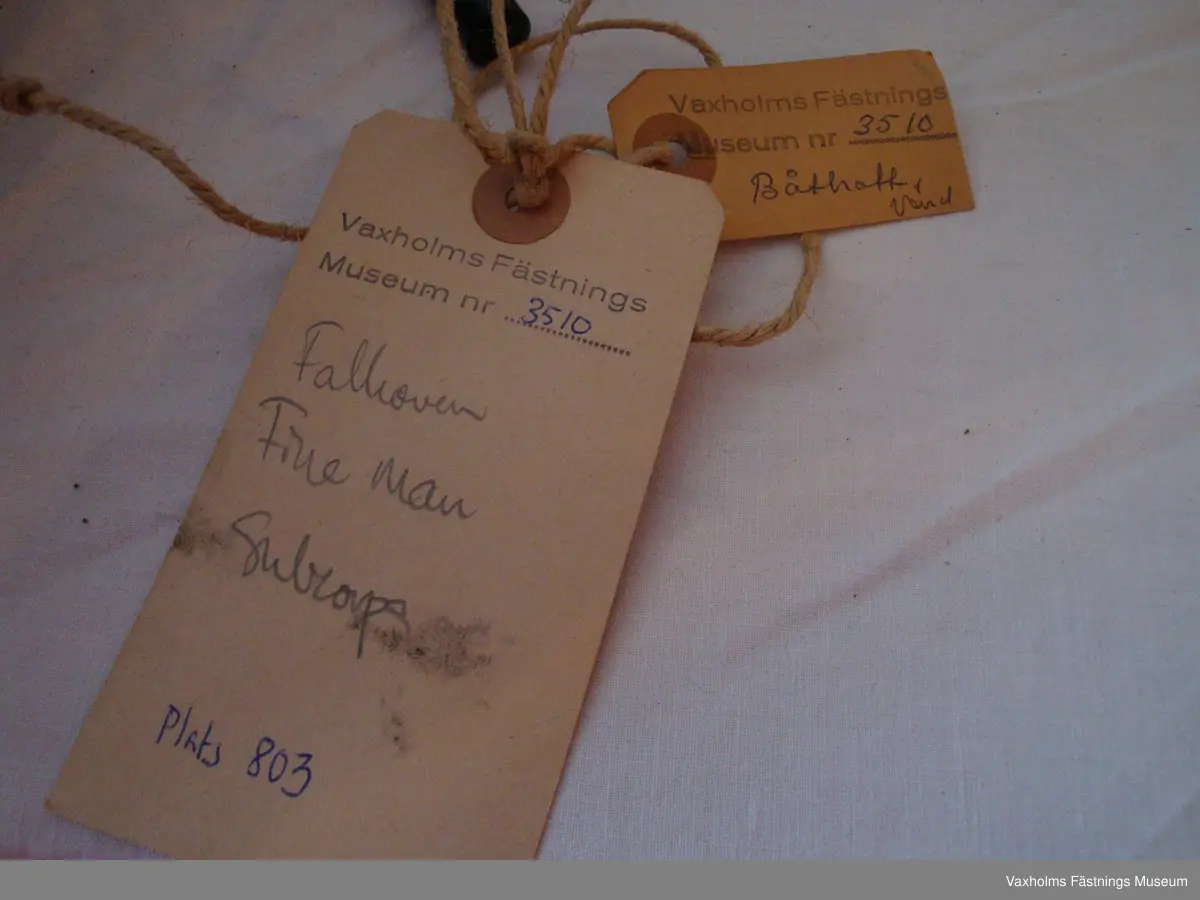 Vaxholms Fästnings
Museum nr 3510
Båthatt,
Vänd
Vaxholms Fästnings
Museum nr 3510
Falhoven
Fine Man
Plats 803
Vaxholms Fästnings Museum